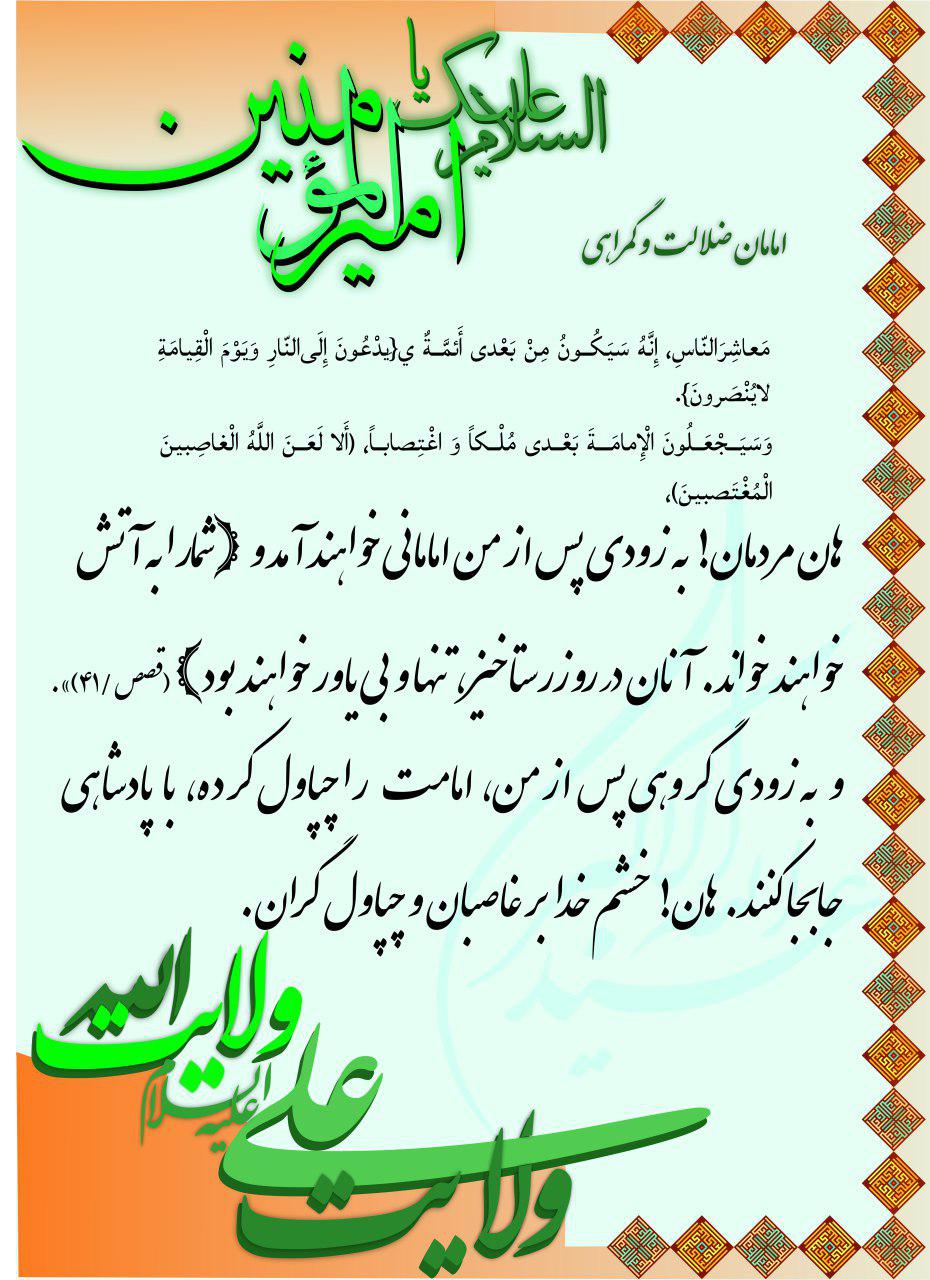 السلام علیک یا
امیرالمؤمنین
امامان ضلالت و گمراهی
مَعاشِرَالنّاسِ، إِنَّهُ سَيَكُـونُ مِنْ بَعْدى أَئمَّـةٌ ي{يدْعُونَ إِلَى‌النّارِ وَيَوْمَ الْقِيامَةِ
لايُنْصَرونَ}.
وَسَيَـجْعَـلُونَ الْإِمامَـةَ بَعْـدى مُلْـكاً وَ اغْتِصابـاً، (أَلا لَعَـنَ اللَّهُ الْغاصِبينَ
الْمُغْتَصبينَ)،
هان مردمان! به زودی پس از من امامانی خواهند آمد و ﴿شما را به آتش
خواهند خواند. آنان در روز رستاخیز، تنها و بی یاور خواهند بود﴾ (قصص /۴۱)».
و به زودی گروهی پس از من، امامت را چپاول کرده، با پادشاهی
جابجا کنند. هان! خشم خدا بر غاصبان و چپاول گران.
ولایت الله
ولایت علی علیه السلام